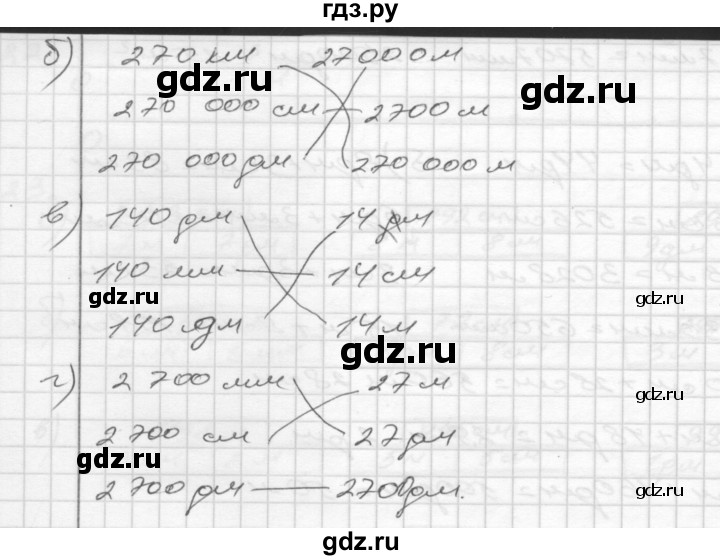 гдз.ру
б) 270 км 27000 м
270 000 см 2700 м
270 000 дм 270 000 м
в) 140 дм 14 дм
140 мм 14 см
140 дм 14 м
г) 2 700 мм 27 м
2 700 см 27 дм
2 700 дм 2700 дм.
gdz.ru
gdz.ru
gdz.ru
gdz.ru
gdz.ru
gdz.ru
gdz.ru
gdz.ru
gdz.ru
gdz.ru